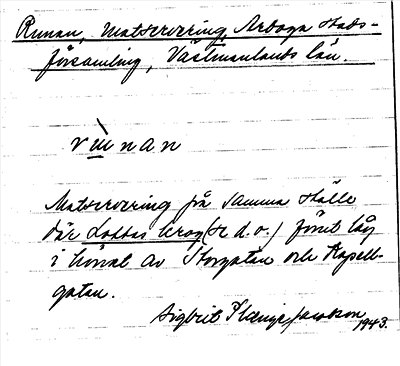 Runan, Matservering, Arboga stads-
församling, Västmanlands län.
rùnan
Matservering på samma ställe
där Lottas krog (se d.o.) förut låg
i hörnet av Storgatan och Kapell-
gatan.
Sigbrit Plænge Jacobson
1943.